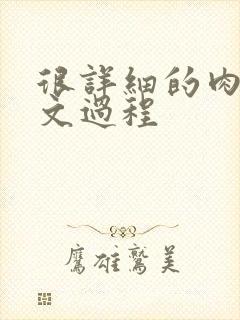 很詳細的肉
文過程
鷹雄鷲美